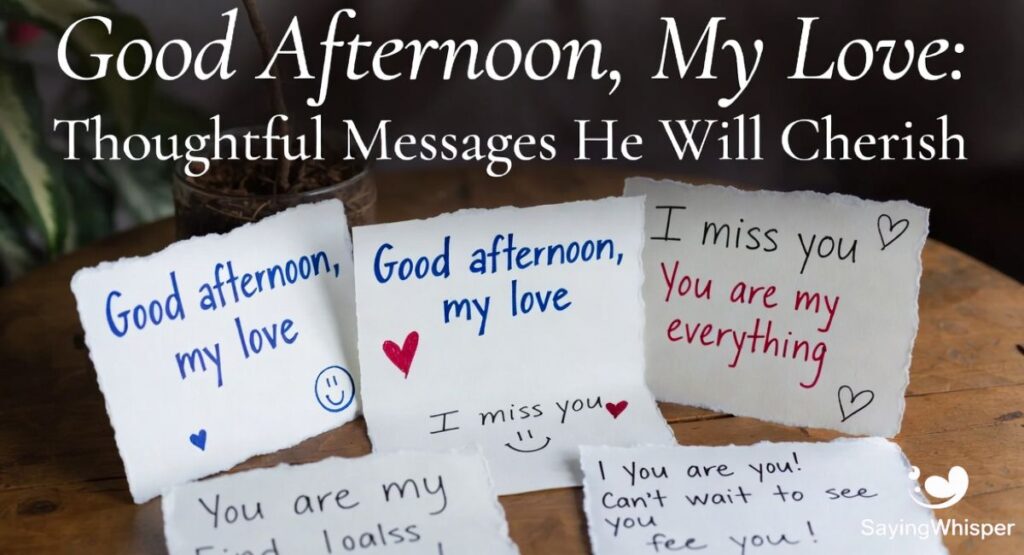 Good Afternoon, My Love:
Thoughtful Messages He Will Cherish
Good afternoon,
my love
Good afternoon,
my love
I miss you
I miss you
You are my
everything
You are my
I you are you!
Can't wait to see
you
fee you!
SayingWhisper